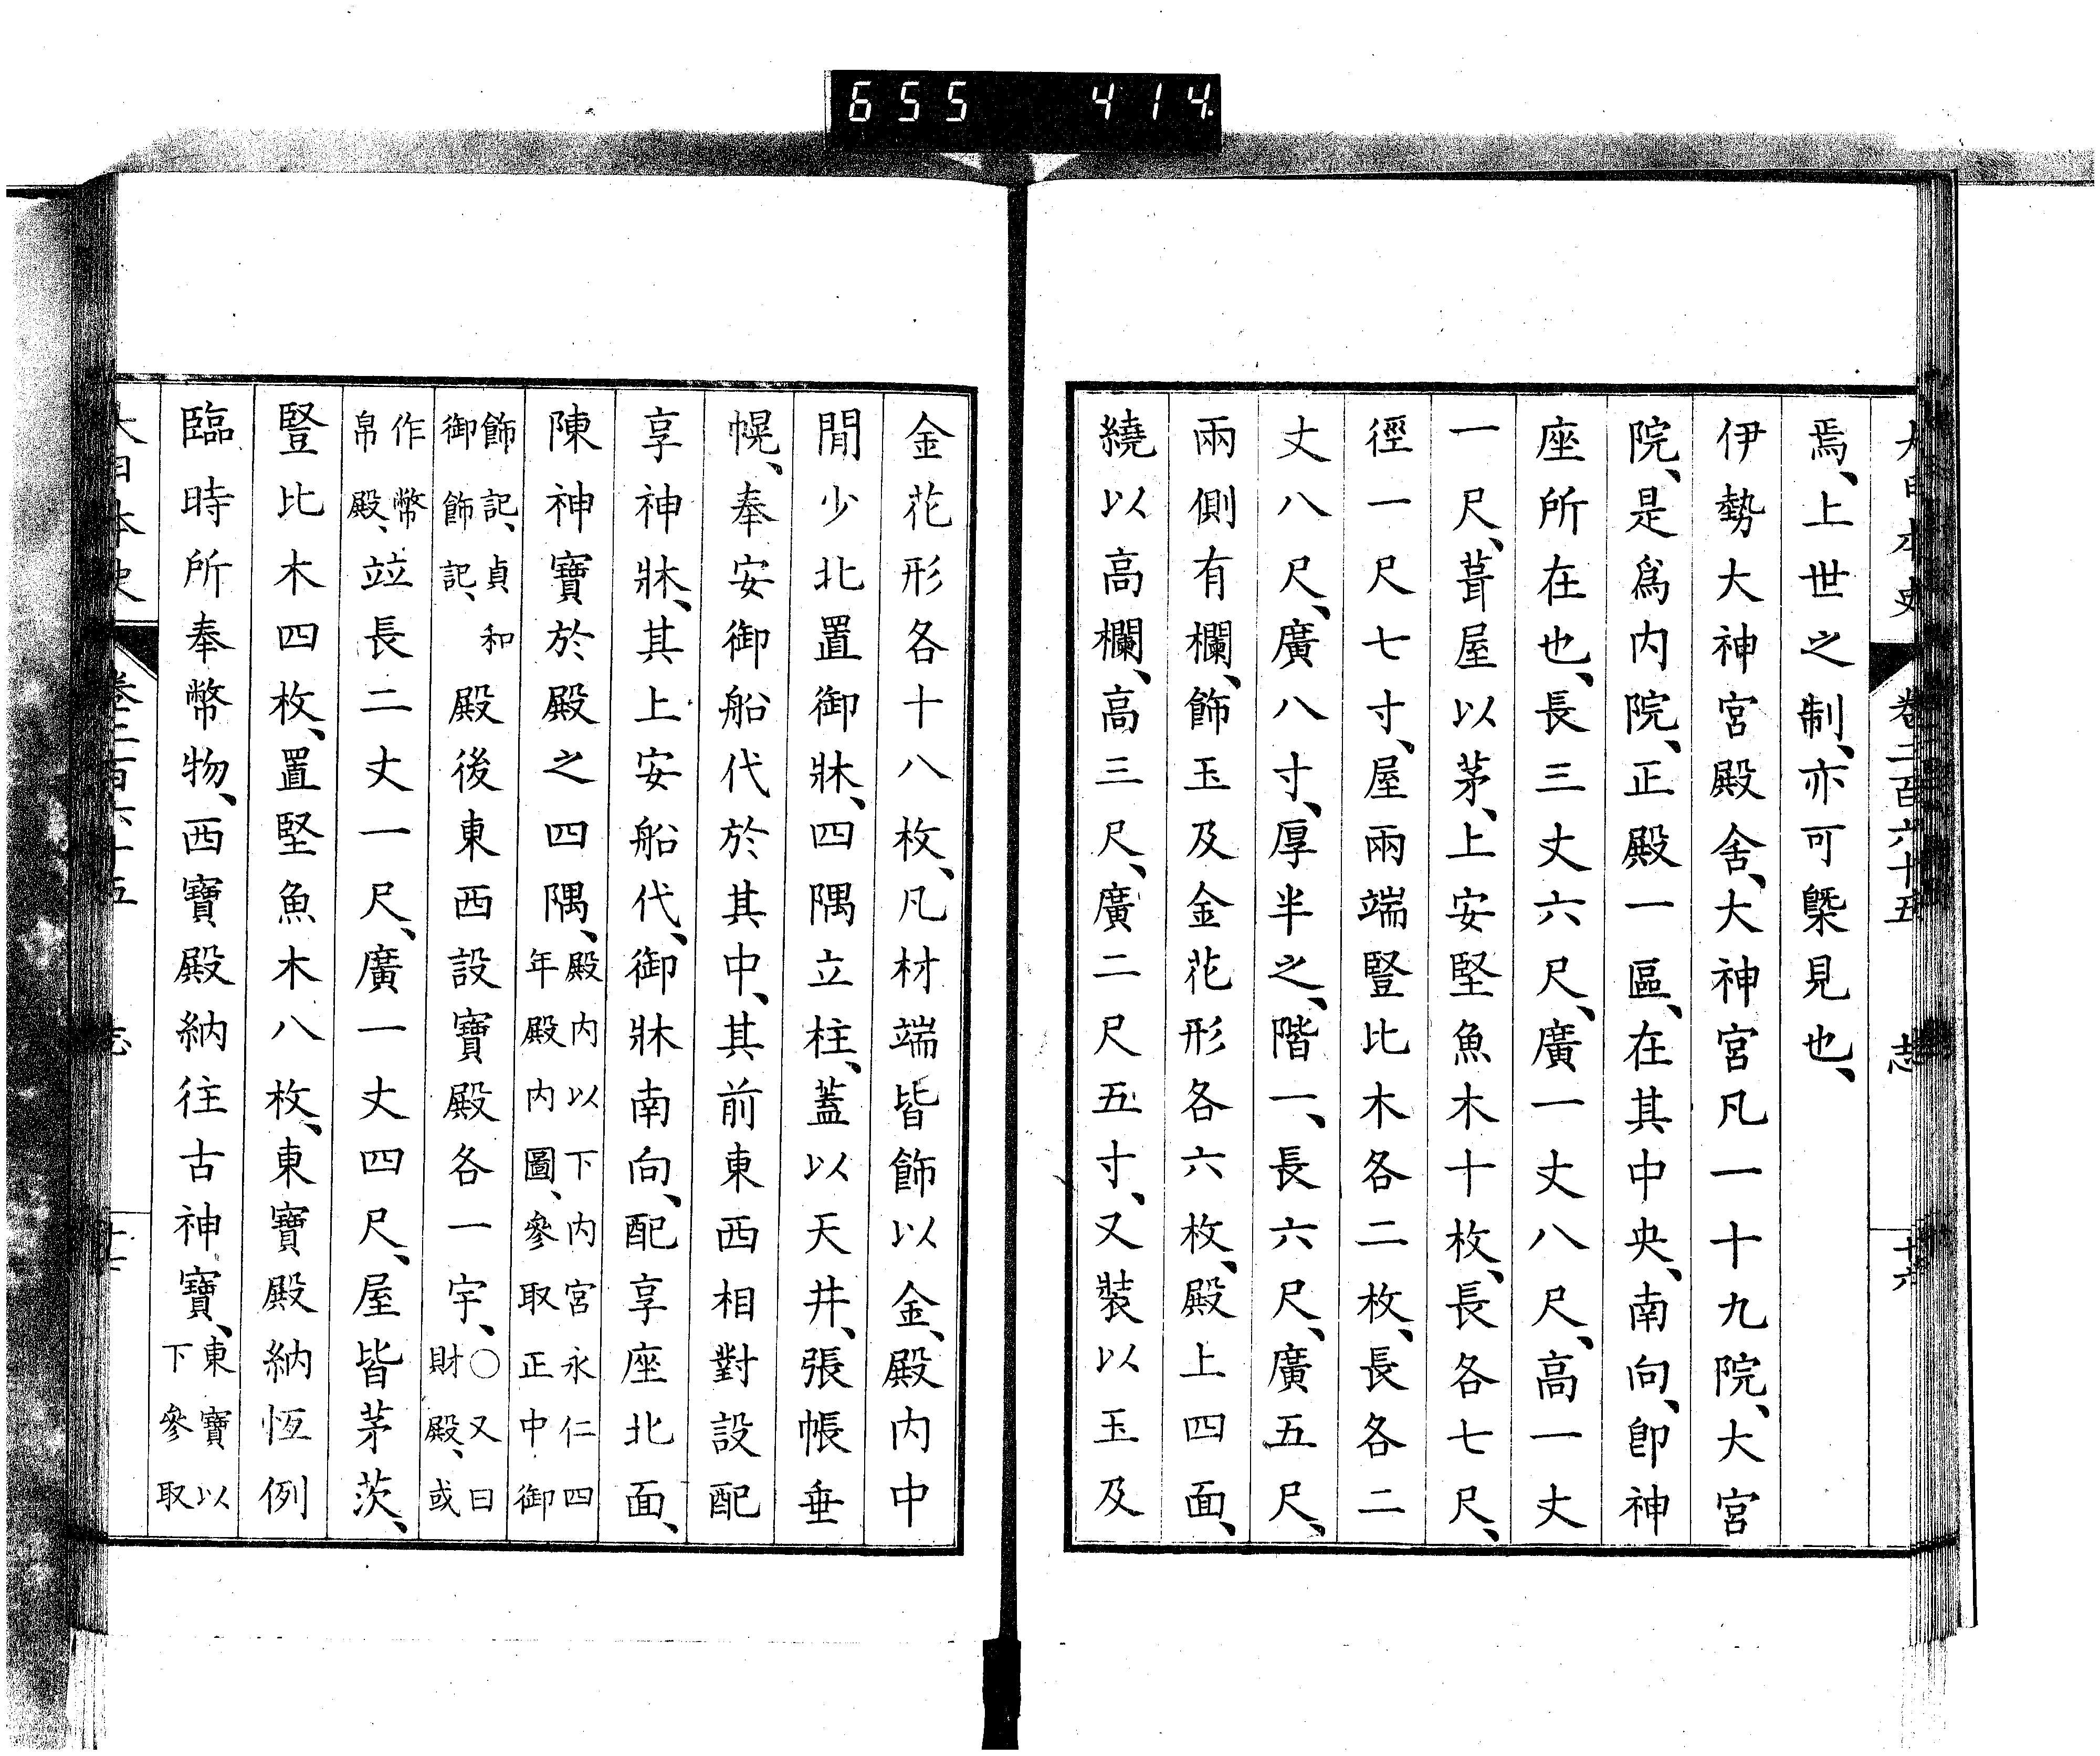 655 414
大日本史 卷二百六十五 志 十六
焉、上世之制、亦可槩見也、
伊勢大神宮殿舍、大神宮凡一十九院、大宮
院、是爲内院、正殿一區、在其中央、南向、卽神
座所在也、長三丈六尺、廣一丈八尺、高一丈
一尺、葺屋以茅、上安堅魚木十枚、長各七尺、
徑一尺七寸、屋兩端豎比木各二枚、長各二
丈八尺、廣八寸、厚半之、階一、長六尺、廣五尺、
兩側有欄、飾玉及金花形各六枚、殿上四面、
繞以高欄、高三尺、廣二尺五寸、又裝以玉及
金花形各十八枚、凡材端皆飾以金、殿内中
閒少北置御牀、四隅立柱、蓋以天井、張帳垂
幌、奉安御船代於其中、其前東西相對設配
享神牀、其上安船代、御牀南向、配享座北面、
陳神寶於殿之四隅、殿内以下内宮永仁四
年殿内圖、參取正中御
飾記、貞和
御飾記、殿後東西設寶殿各一宇、○又曰
財殿、或
作幣
帛殿、竝長二丈一尺、廣一丈四尺、屋皆茅茨、
豎比木四枚、置堅魚木八枚、東寶殿納恆例
臨時所奉幣物、西寶殿納往古神寶、東寶以
下參取
大日本史 卷二百六十五 志